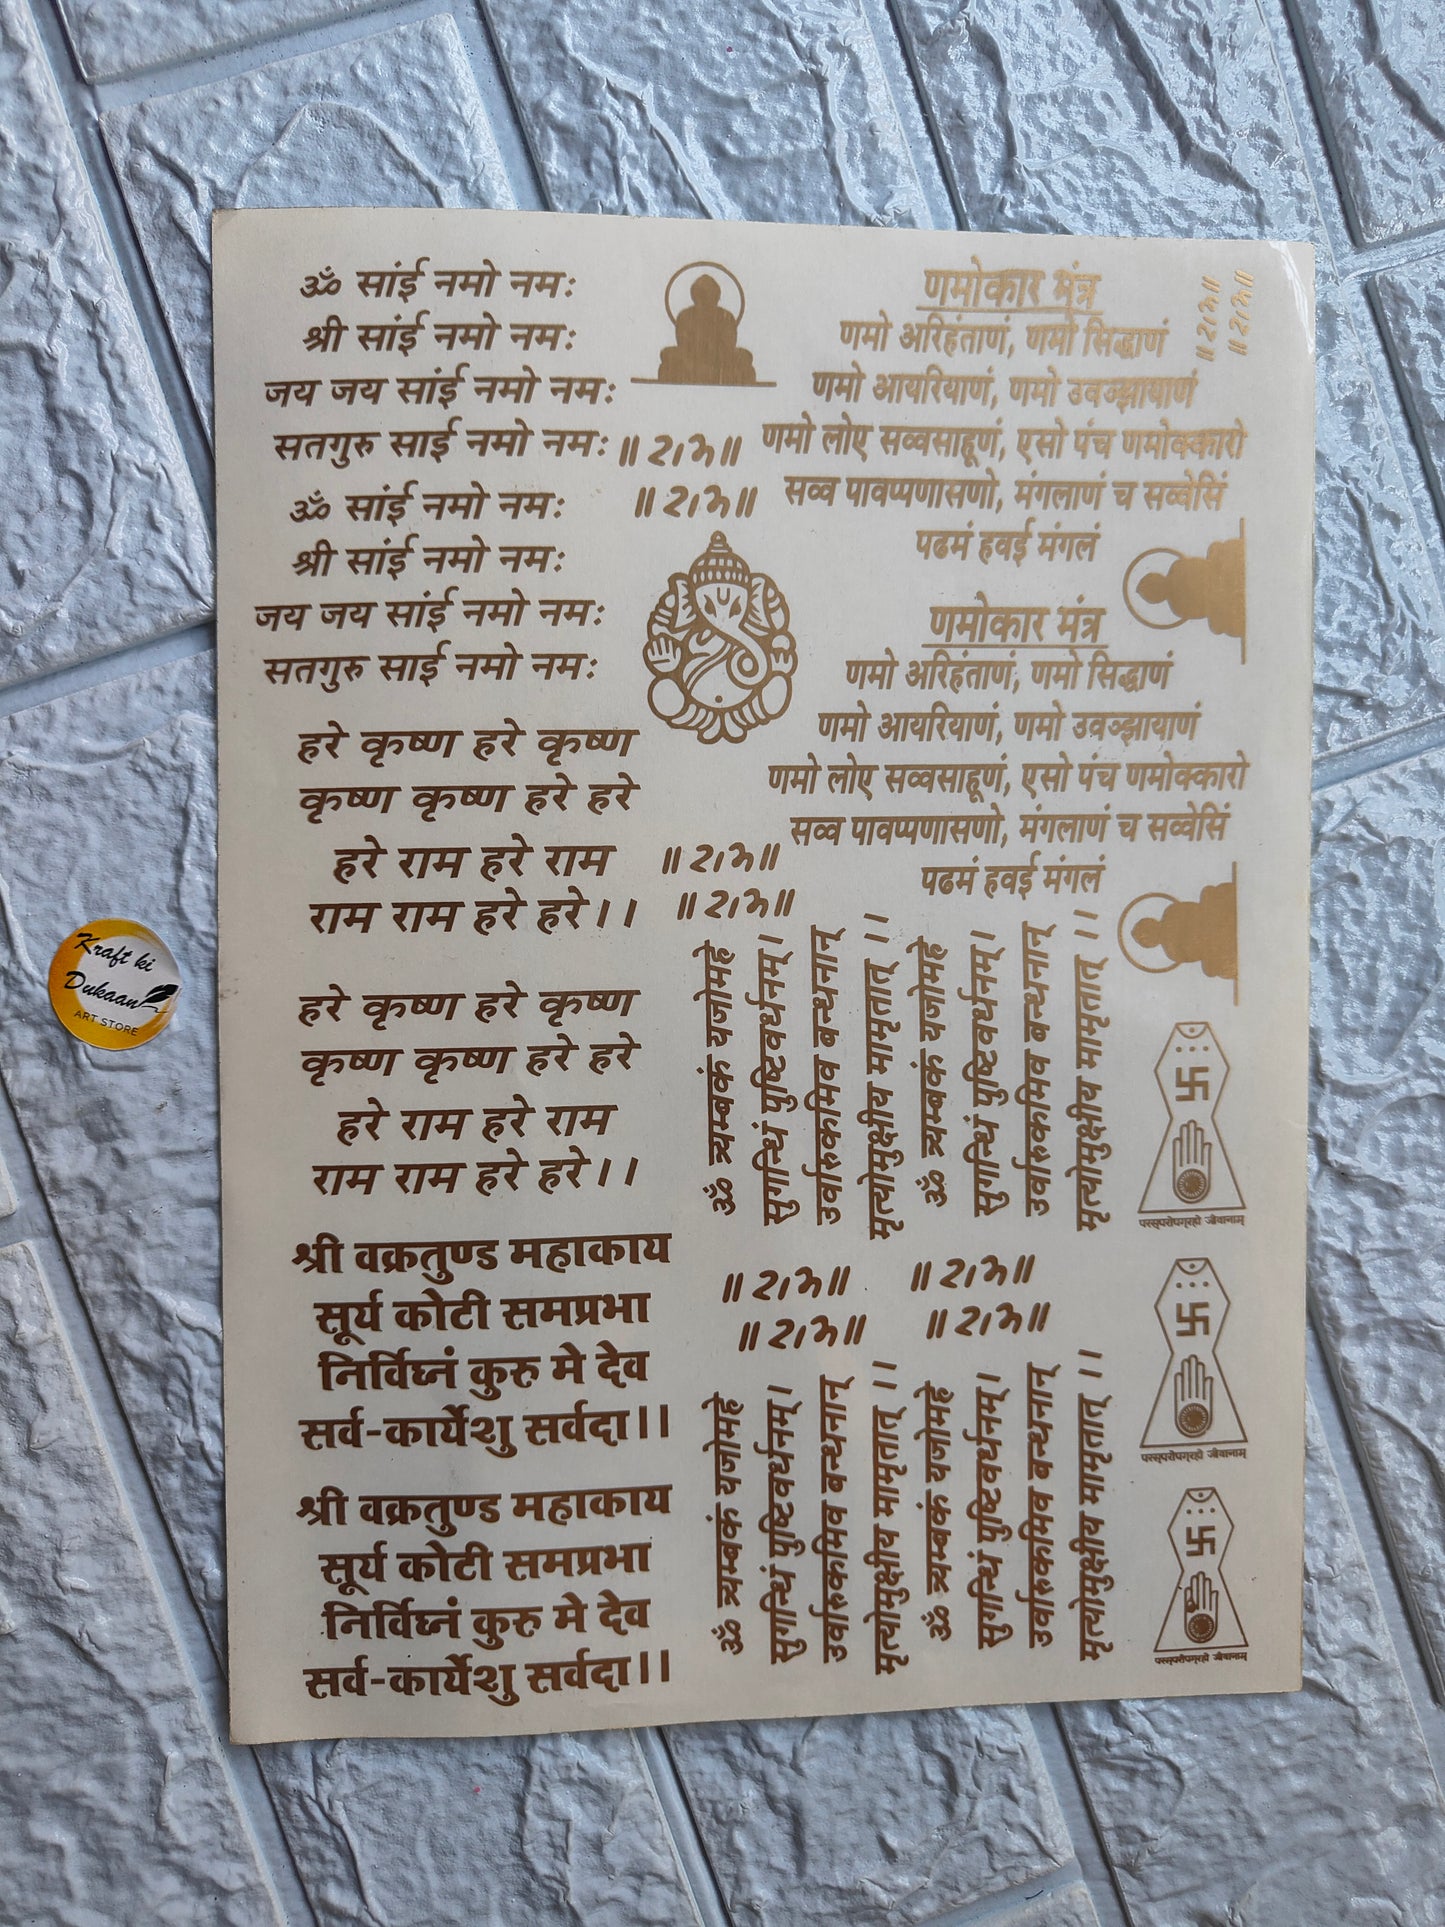 ॐ सांई नमो नमः
श्री सांई नमो नमः
जय जय सांई नमो नमः
सतगुरु साई नमो नमः
ॐ सांई नमो नमः
श्री सांई नमो नमः
जय जय सांई नमो नमः
सतगुरु साई नमो नमः
॥ राम ॥
॥ राम ॥
णमोकार मंत्र
णमो अरिहंताणं, णमो सिद्धाणं
णमो आयरियाणं, णमो उवज्झायाणं
णमो लोए सव्वसाहूणं, एसो पंच णमोक्कारो
सव्व पावप्पणासणो, मंगलाणं च सव्वेसिं
पढमं हवई मंगलं
॥ राम ॥
॥ राम ॥
णमोकार मंत्र
णमो अरिहंताणं, णमो सिद्धाणं
णमो आयरियाणं, णमो उवज्झायाणं
णमो लोए सव्वसाहूणं, एसो पंच णमोक्कारो
सव्व पावप्पणासणो, मंगलाणं च सव्वेसिं
पढमं हवई मंगलं
हरे कृष्ण हरे कृष्ण
कृष्ण कृष्ण हरे हरे
हरे राम हरे राम
राम राम हरे हरे।।
॥ राम ॥
॥ राम ॥
हरे कृष्ण हरे कृष्ण
कृष्ण कृष्ण हरे हरे
हरे राम हरे राम
राम राम हरे हरे।।
ॐ त्र्यम्बकं यजामहे
सुगन्धिं पुष्टिवर्धनम्।
उर्वारुकमिव बन्धनान्
मृत्योर्मुक्षीय मामृतात् ।।
ॐ त्र्यम्बकं यजामहे
सुगन्धिं पुष्टिवर्धनम्।
उर्वारुकमिव बन्धनान्
मृत्योर्मुक्षीय मामृतात् ।।
परस्परोपग्रहो जीवानाम्
श्री वक्रतुण्ड महाकाय
सूर्य कोटी समप्रभा
निर्विघ्नं कुरु मे देव
सर्व-कार्येशु सर्वदा।।
॥ राम ॥
॥ राम ॥
॥ राम ॥
॥ राम ॥
परस्परोपग्रहो जीवानाम्
श्री वक्रतुण्ड महाकाय
सूर्य कोटी समप्रभा
निर्विघ्नं कुरु मे देव
सर्व-कार्येशु सर्वदा।।
ॐ त्र्यम्बकं यजामहे
सुगन्धिं पुष्टिवर्धनम्।
उर्वारुकमिव बन्धनान्
मृत्योर्मुक्षीय मामृतात् ।।
ॐ त्र्यम्बकं यजामहे
सुगन्धिं पुष्टिवर्धनम्।
उर्वारुकमिव बन्धनान्
मृत्योर्मुक्षीय मामृतात् ।।
परस्परोपग्रहो जीवानाम्
Kraft ki
Dukaan
ART STORE